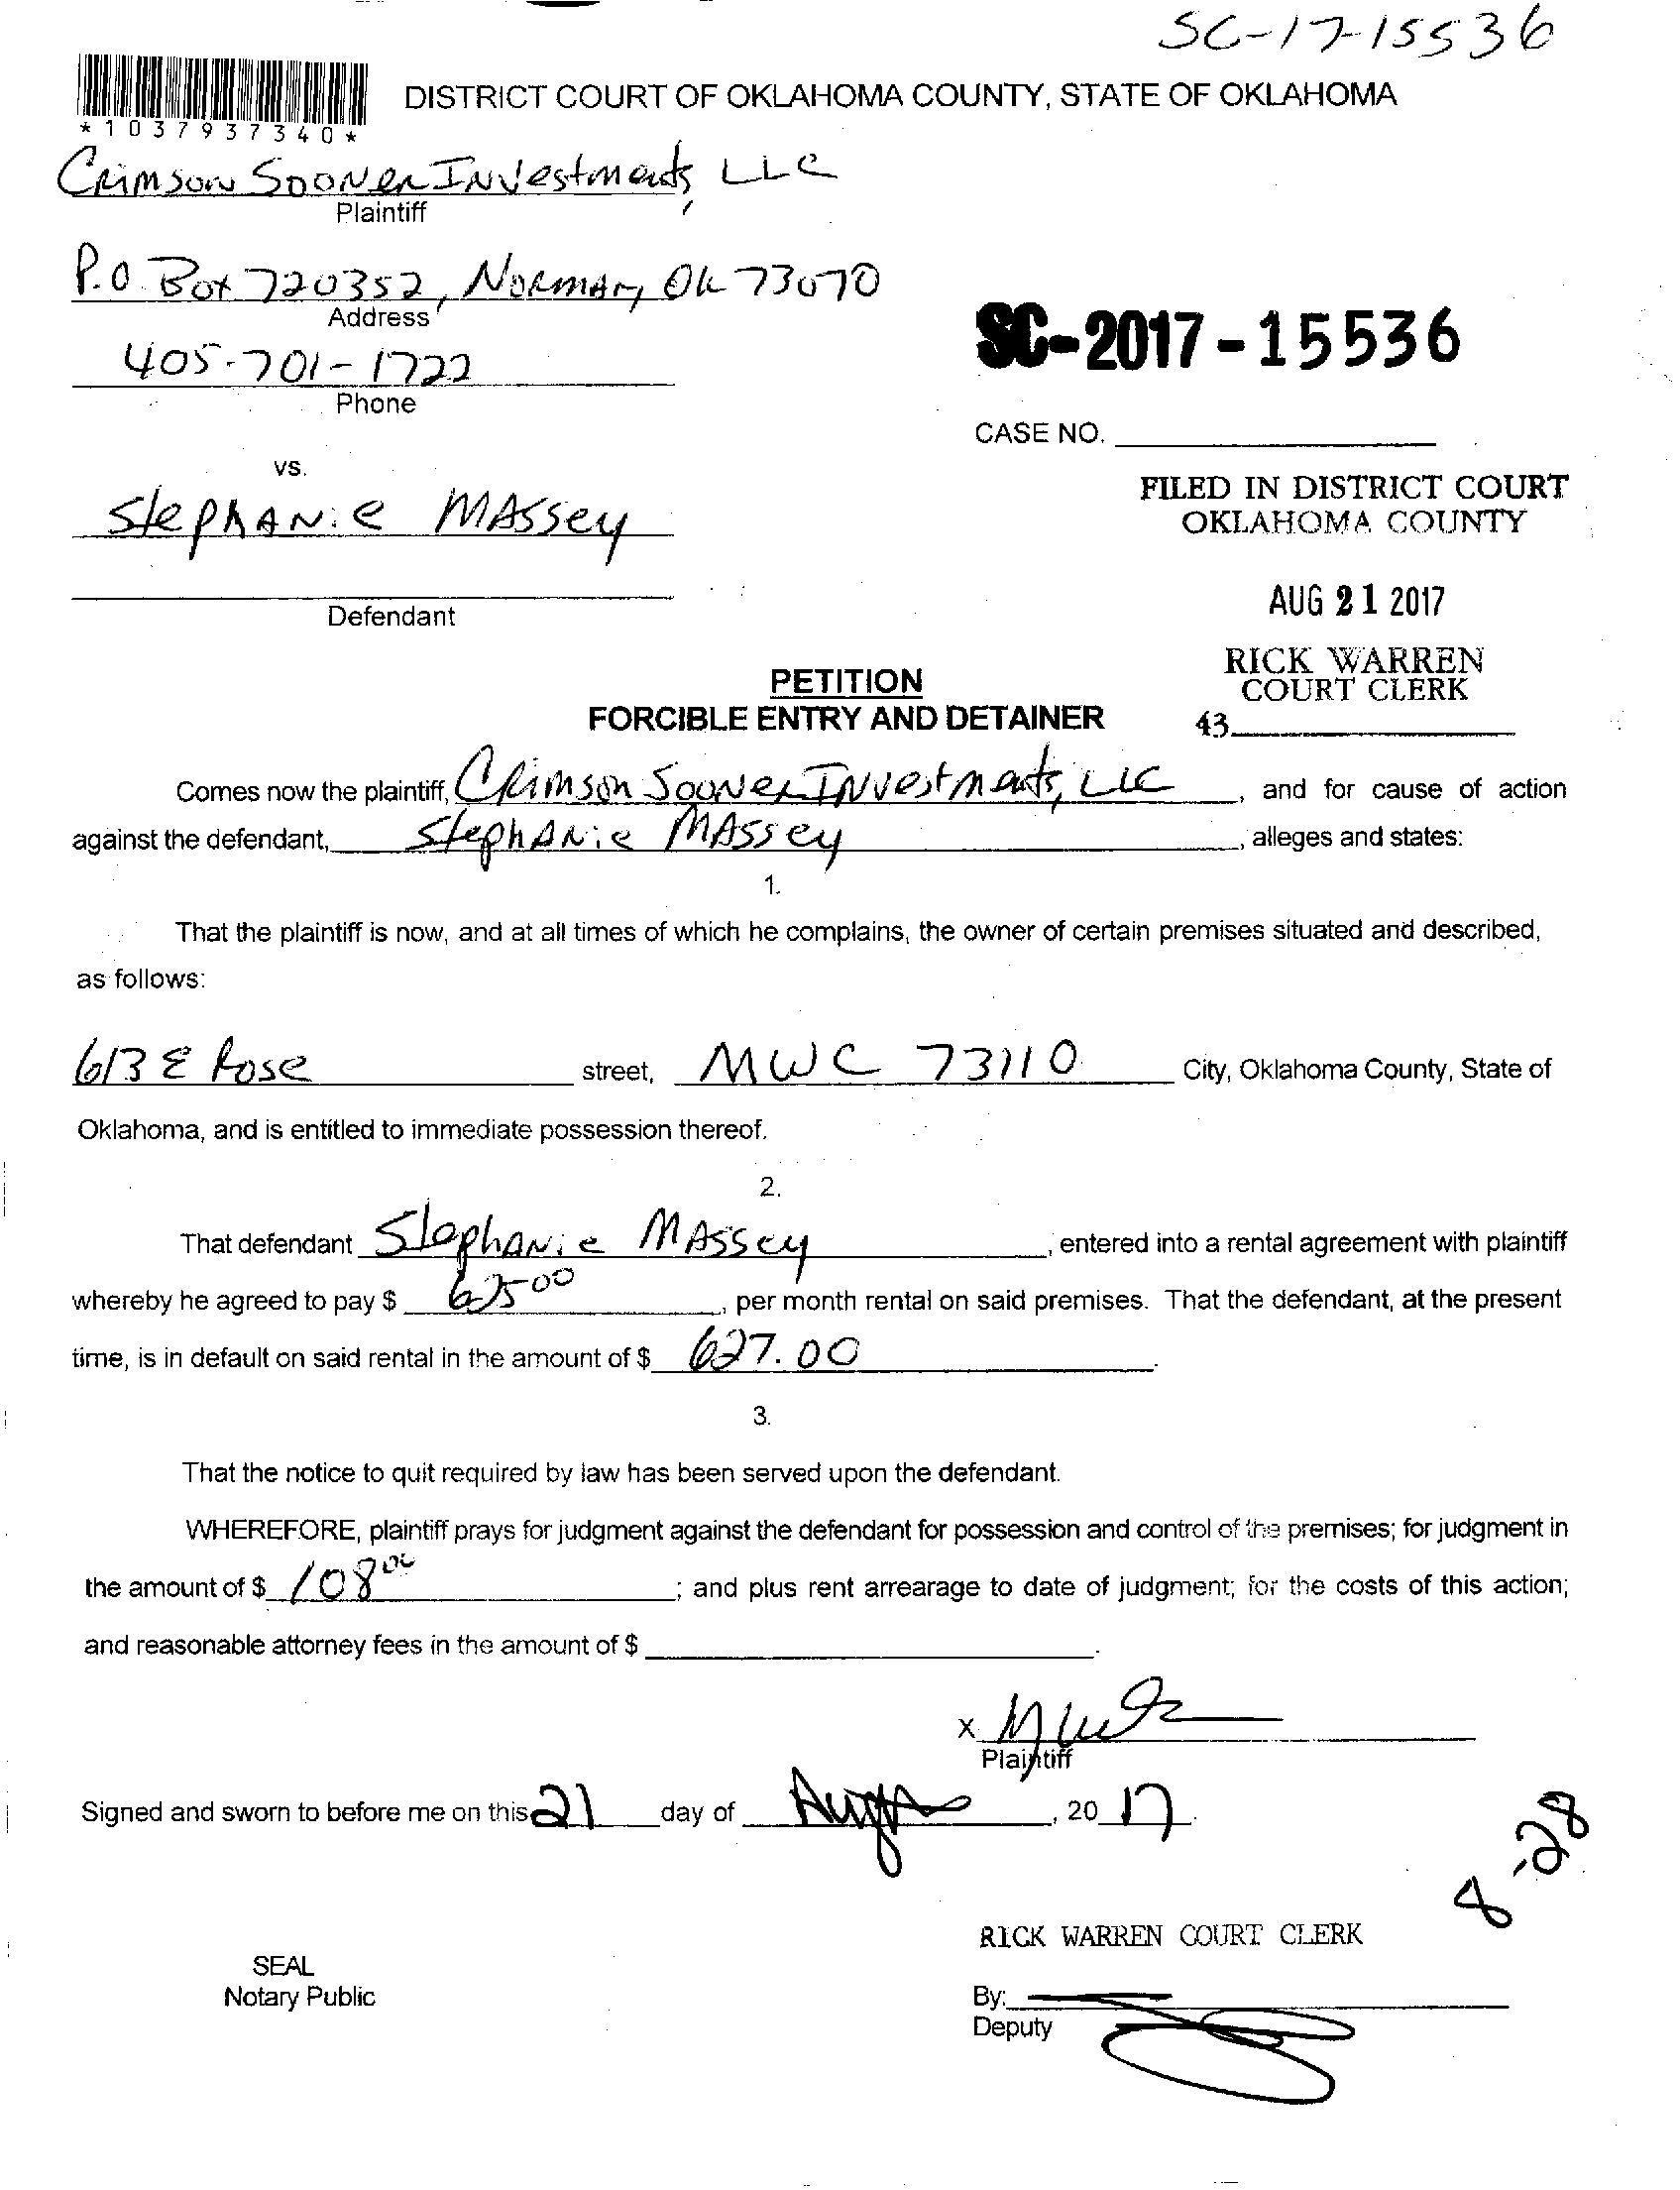 SC-17-15536
*1037937340*
DISTRICT COURT OF OKLAHOMA COUNTY, STATE OF OKLAHOMA
Crimson Sooner Investments, LLC
Plaintiff
P.O. Box 720352, Norman, Ok 73070
Address
405-701-1722
Phone
SC-2017-15536
CASE NO.
vs.
Stephanie Massey
Defendant
FILED IN DISTRICT COURT
OKLAHOMA COUNTY
AUG 21 2017
RICK WARREN
COURT CLERK
43
PETITION
FORCIBLE ENTRY AND DETAINER
Comes now the plaintiff, Crimson Sooner Investments, LLC, and for cause of action
against the defendant, Stephanie Massey, alleges and states:
1.
That the plaintiff is now, and at all times of which he complains, the owner of certain premises situated and described,
as follows:
613 E Rose street, MWC 73110 City, Oklahoma County, State of
Oklahoma, and is entitled to immediate possession thereof.
2.
That defendant Stephanie Massey, entered into a rental agreement with plaintiff
whereby he agreed to pay $ , per month rental on said premises. That the defendant, at the present
time, is in default on said rental in the amount of $ 627.00.
3.
That the notice to quit required by law has been served upon the defendant.
WHEREFORE, plaintiff prays for judgment against the defendant for possession and control of the premises; for judgment in
the amount of $ 108 00; and plus rent arrearage to date of judgment; for the costs of this action;
and reasonable attorney fees in the amount of $ .
X
Plaintiff
Signed and sworn to before me on this 21 day of August, 20 17.
8-28
RICK WARREN COURT CLERK
SEAL
Notary Public
By:
Deputy